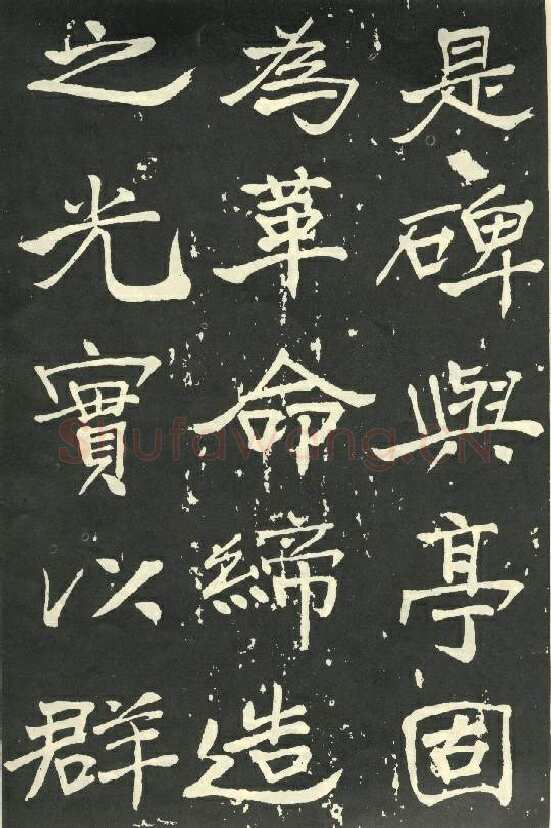 是碑與亭固
為革命締造
之光實以群
Shufawang.CN